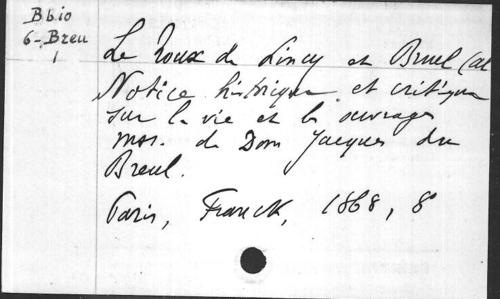 B bio
6 - Breu
1
Le Roux de Lincy et Bruel (al
Notice historique et critique
sur la vie et les ouvrages
mss. de Dom Jacques du
Breul.
Paris, Franck, 1868, 8°